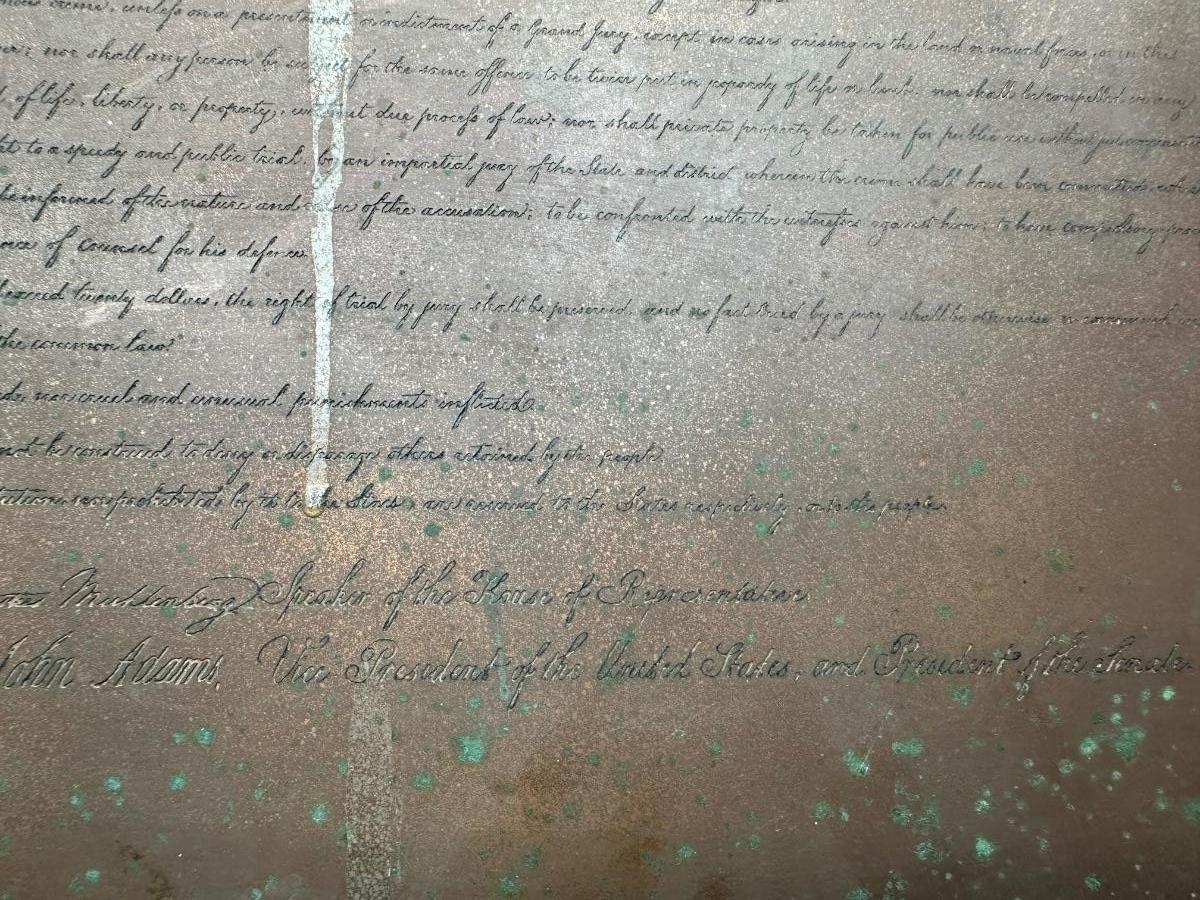 crime, unless on a presentment or indictment of a Grand Jury, except in cases arising in the land or naval forces, or in the
nor shall any person be subject for the same offence to be twice put in jeopardy of life or limb, nor shall be compelled in any
of life, liberty, or property, without due process of law; nor shall private property be taken for public use without just compensation
to a speedy and public trial, by an impartial jury of the State and district wherein the crime shall have been committed,
be informed of the nature and cause of the accusation; to be confronted with the witnesses against him; to have compulsory
of Counsel for his defence.
exceed twenty dollars, the right of trial by jury shall be preserved, and no fact tried by a jury shall be otherwise
the common law.
nor cruel and unusual punishments inflicted.
not be construed to deny or disparage others retained by the people.
prohibited by it to the States, are reserved to the States respectively, or to the people.
Muhlenberg Speaker of the House of Representatives
John Adams, Vice President of the United States, and President of the Senate